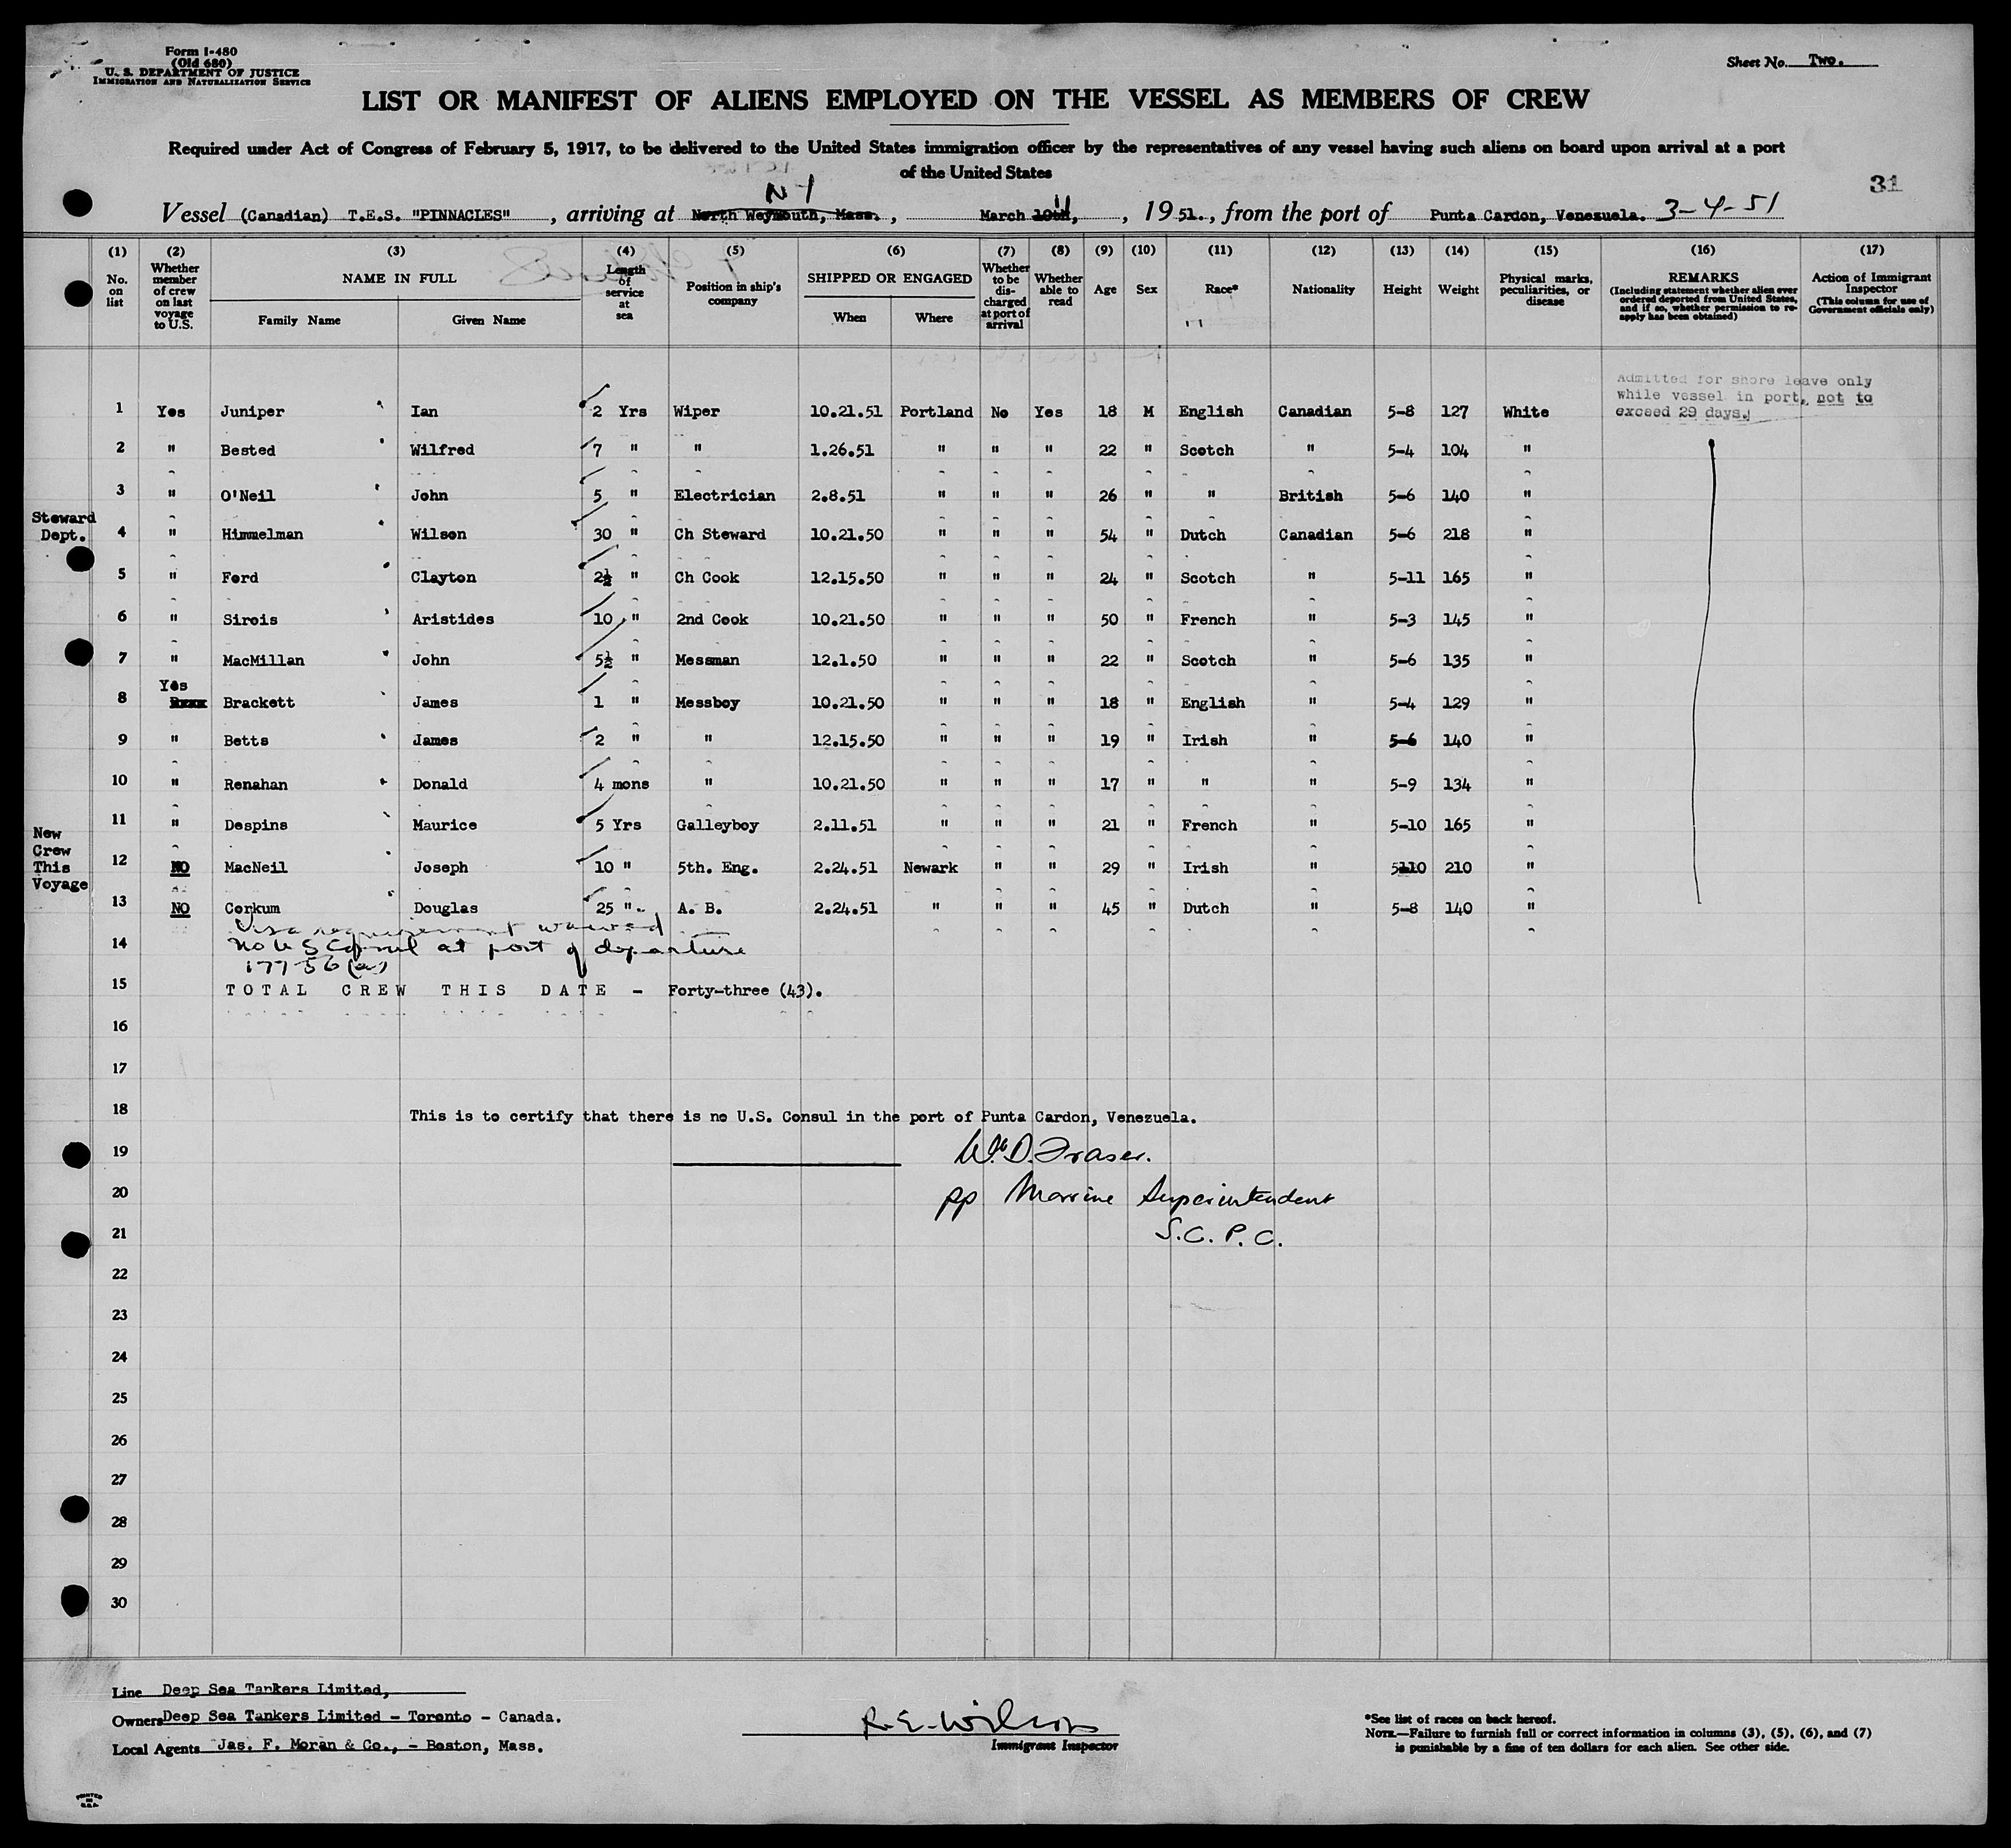 Form I-480
(Old 680)
U. S. DEPARTMENT OF JUSTICE
IMMIGRATION AND NATURALIZATION SERVICE
Sheet No. Two.
LIST OR MANIFEST OF ALIENS EMPLOYED ON THE VESSEL AS MEMBERS OF CREW
Required under Act of Congress of February 5, 1917, to be delivered to the United States immigration officer by the representatives of any vessel having such aliens on board upon arrival at a port
of the United States
31
N Y
Vessel (Canadian) T.E.S. "PINNACLES", arriving at North Weymouth, Mass., March 10th, 11, 1951., from the port of Punta Cardon, Venezuela. 3-4-51
(1) (2) (3) (4) (5) (6) (7) (8) (9) (10) (11) (12) (13) (14) (15) (16) (17)
No. on list
Whether member of crew on last voyage to U.S.
NAME IN FULL
Family Name Given Name
Length of service at sea
Position in ship's company
SHIPPED OR ENGAGED
When Where
Whether to be discharged at port of arrival
Whether able to read
Age
Sex
Race*
Nationality
Height
Weight
Physical marks, peculiarities, or disease
REMARKS
(Including statement whether alien ever ordered deported from United States, and if so, whether permission to reapply has been obtained)
Action of Immigrant Inspector
(This column for use of Government officials only)
Admitted for shore leave only
while vessel in port, not to
exceed 29 days.
1 Yes Juniper Ian 2 Yrs Wiper 10.21.51 Portland No Yes 18 M English Canadian 5-8 127 White
2 " Bested Wilfred 7 " " 1.26.51 " " " 22 " Scotch " 5-4 104 "
3 " O'Neil John 5 " Electrician 2.8.51 " " " 26 " " British 5-6 140 "
Steward
Dept.
4 " Himmelman Wilson 30 " Ch Steward 10.21.50 " " " 54 " Dutch Canadian 5-6 218 "
5 " Ford Clayton 2½ " Ch Cook 12.15.50 " " " 24 " Scotch " 5-11 165 "
6 " Sirois Aristides 10 " 2nd Cook 10.21.50 " " " 50 " French " 5-3 145 "
7 " MacMillan John 5½ " Messman 12.1.50 " " " 22 " Scotch " 5-6 135 "
Yes
8 Brackett James 1 " Messboy 10.21.50 " " " 18 " English " 5-4 129 "
9 " Betts James 2 " " 12.15.50 " " " 19 " Irish " 5-6 140 "
10 " Renahan Donald 4 mons " 10.21.50 " " " 17 " " " 5-9 134 "
11 " Despins Maurice 5 Yrs Galleyboy 2.11.51 " " " 21 " French " 5-10 165 "
New
Crew
This
Voyage
12 NO MacNeil Joseph 10 " 5th. Eng. 2.24.51 Newark " " 29 " Irish " 5-10 210 "
13 NO Corkum Douglas 25 " A. B. 2.24.51 " " " 45 " Dutch " 5-8 140 "
Visa requirement waived
14 No U S Consul at port of departure
177 56 (a)
15 TOTAL CREW THIS DATE - Forty-three (43).
16
17
18 This is to certify that there is no U.S. Consul in the port of Punta Cardon, Venezuela.
19 Wm D. Fraser.
20 pp Marine Superintendent
21 S.C.P.C.
22
23
24
25
26
27
28
29
30
Line Deep Sea Tankers Limited,
Owners Deep Sea Tankers Limited - Toronto - Canada.
Local Agents Jas. F. Moran & Co., - Boston, Mass.
R. E. Wilson
Immigrant Inspector
*See list of races on back hereof.
NOTE.—Failure to furnish full or correct information in columns (3), (5), (6), and (7)
is punishable by a fine of ten dollars for each alien. See other side.
PRINTED
IN
U.S.A.